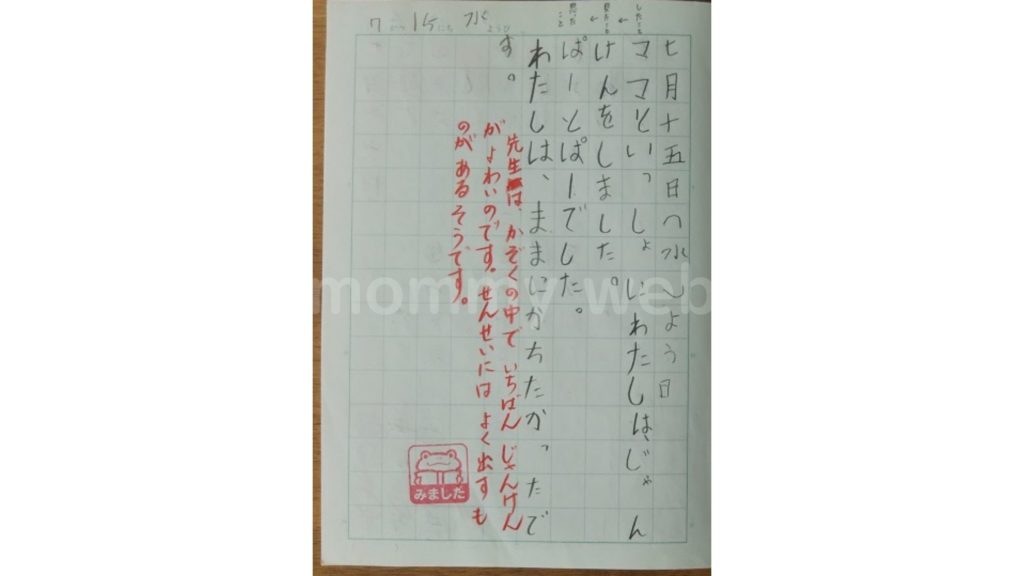 7がつ15にち水ようび
したこと
見たこと
思ったこと
七月十五日(水)よう日
ママといっしょにわたしは、じゃん
けんをしました。
ぱーとぱーでした。
わたしは、ままにかちたかったで
す。
先生は、かぞくの中でいちばんじゃんけん
がよわいのです。せんせいにはよく出すも
のがあるそうです。
みました
mommy web